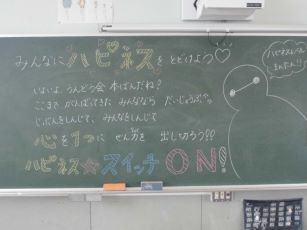 みんなに ハピネスを とどけよう♡
いよいよ、うんどう会 本ばんだね?
ここまで がんばってきた みんななら だいじょうぶ
じぶんをしんじて、みんなをしんじて
心を1つに ぜん力を 出し切ろう!!
ハピネス☆スイッチON!
ハピネスレベル
まんたん!!